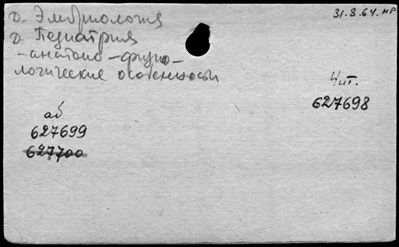 д. Эмбриология
31.8.64. НР
д. Педиатрия
- анатомо - физио -
логические особенности
Чит.
627698
аб
627699
627700